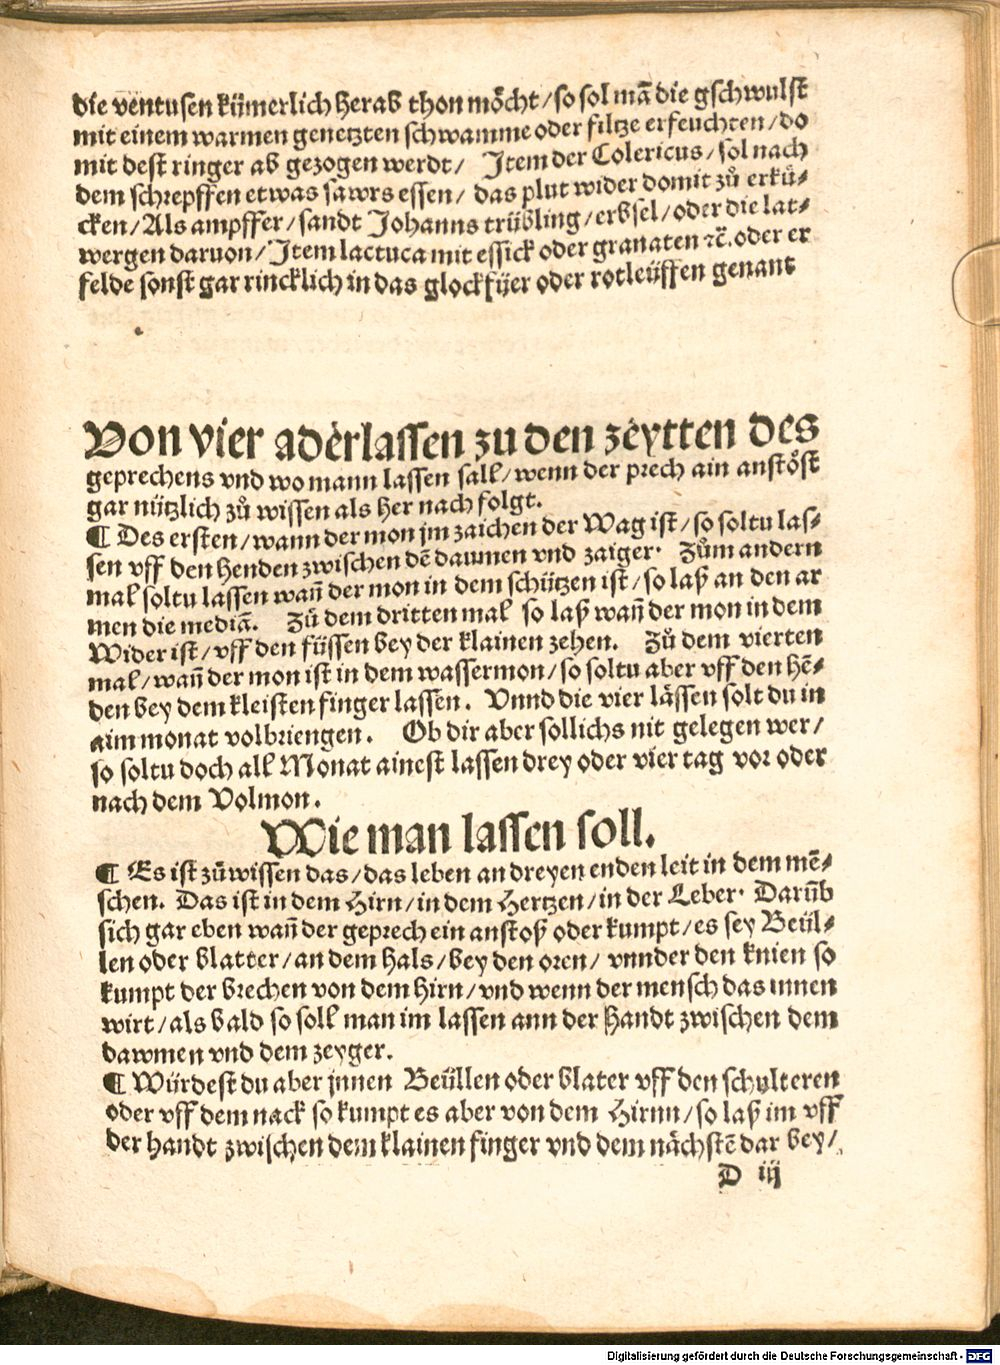 die ventusen kümerlich herab thon möcht/so sol mā die gschwulst
mit einem warmen genetzten schwamme oder filtze erfeuchten/do
mit dest ringer ab gezogen werdt/ Item der Colericus/sol nach
dem schrepffen etwas sawrs essen/ das plut wider domit zů erkü⸗
cken/Als ampffer/sandt Johanns trübling/erbsel/oder die lat⸗
wergen daruon/Item lactuca mit essick oder granaten ꝛc̄.oder er
felde sonst gar rincklich in das glockfÿer oder rotleüffen genant
Von vier adèrlassen zu den zèytten des
geprechens vnd wo mann lassen sall/wenn der prech ain anstöst
gar nützlich zů wissen als her nach folgt.
¶ Des ersten/wann der mon jm zaichen der Wag ist/so soltu las⸗
sen vff den henden zwischen dē dawnen vnd zaiger. Zům andern
mal soltu lassen wañ der mon in dem schützen ist/so laß an den ar
men die mediā. Zů dem dritten mal so laß wañ der mon in dem
Wider ist/vff den füssen bey der klainen zehen. Zů dem vierten
mal/wañ der mon ist in dem wassermon/so soltu aber vff den hē⸗
den bey dem kleisten finger lassen. Vnnd die vier lässen solt du in
aim monat volbriengen. Ob dir aber sollichs nit gelegen wer/
so soltu doch all Monat ainest lassen drey oder vier tag vor oder
nach dem Volmon.
Wie man lassen soll.
¶ Es ist zůwissen das/das leben an dreyen enden leit in dem mē⸗
schen. Das ist in dem Hirn/in dem Hertzen/in der Leber. Darūb
sich gar eben wañ der geprech ein anstoß oder kumpt/es sey Beül⸗
len oder blatter/an dem hals/bey den oren/ vnnder den knien so
kumpt der brechen von dem hirn/vnd wenn der mensch das innen
wirt/als bald so soll man im lassen ann der Handt zwischen dem
dawmen vnd dem zeyger.
¶ Würdest du aber jnnen Beüllen oder blater vff den schulteren
oder vff dem nack so kumpt es aber von dem Hirnn/so laß im vff
der handt zwischen dem klainen finger vnd dem nächstē dar bey/
D iij
Digitalisierung gefördert durch die Deutsche Forschungsgemeinschaft - DFG